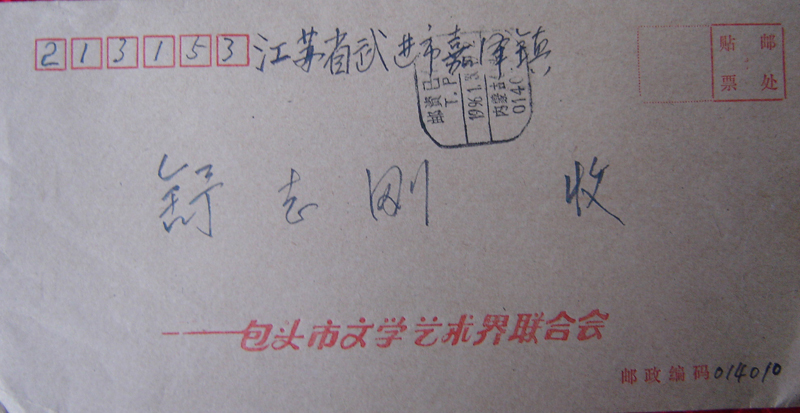 213153 江苏省武进市嘉泽镇
贴 邮
票 处
邮资已
T.P.
1996.1.3
内蒙古
014
舒志刚 收
——包头市文学艺术界联合会
邮政编码014010